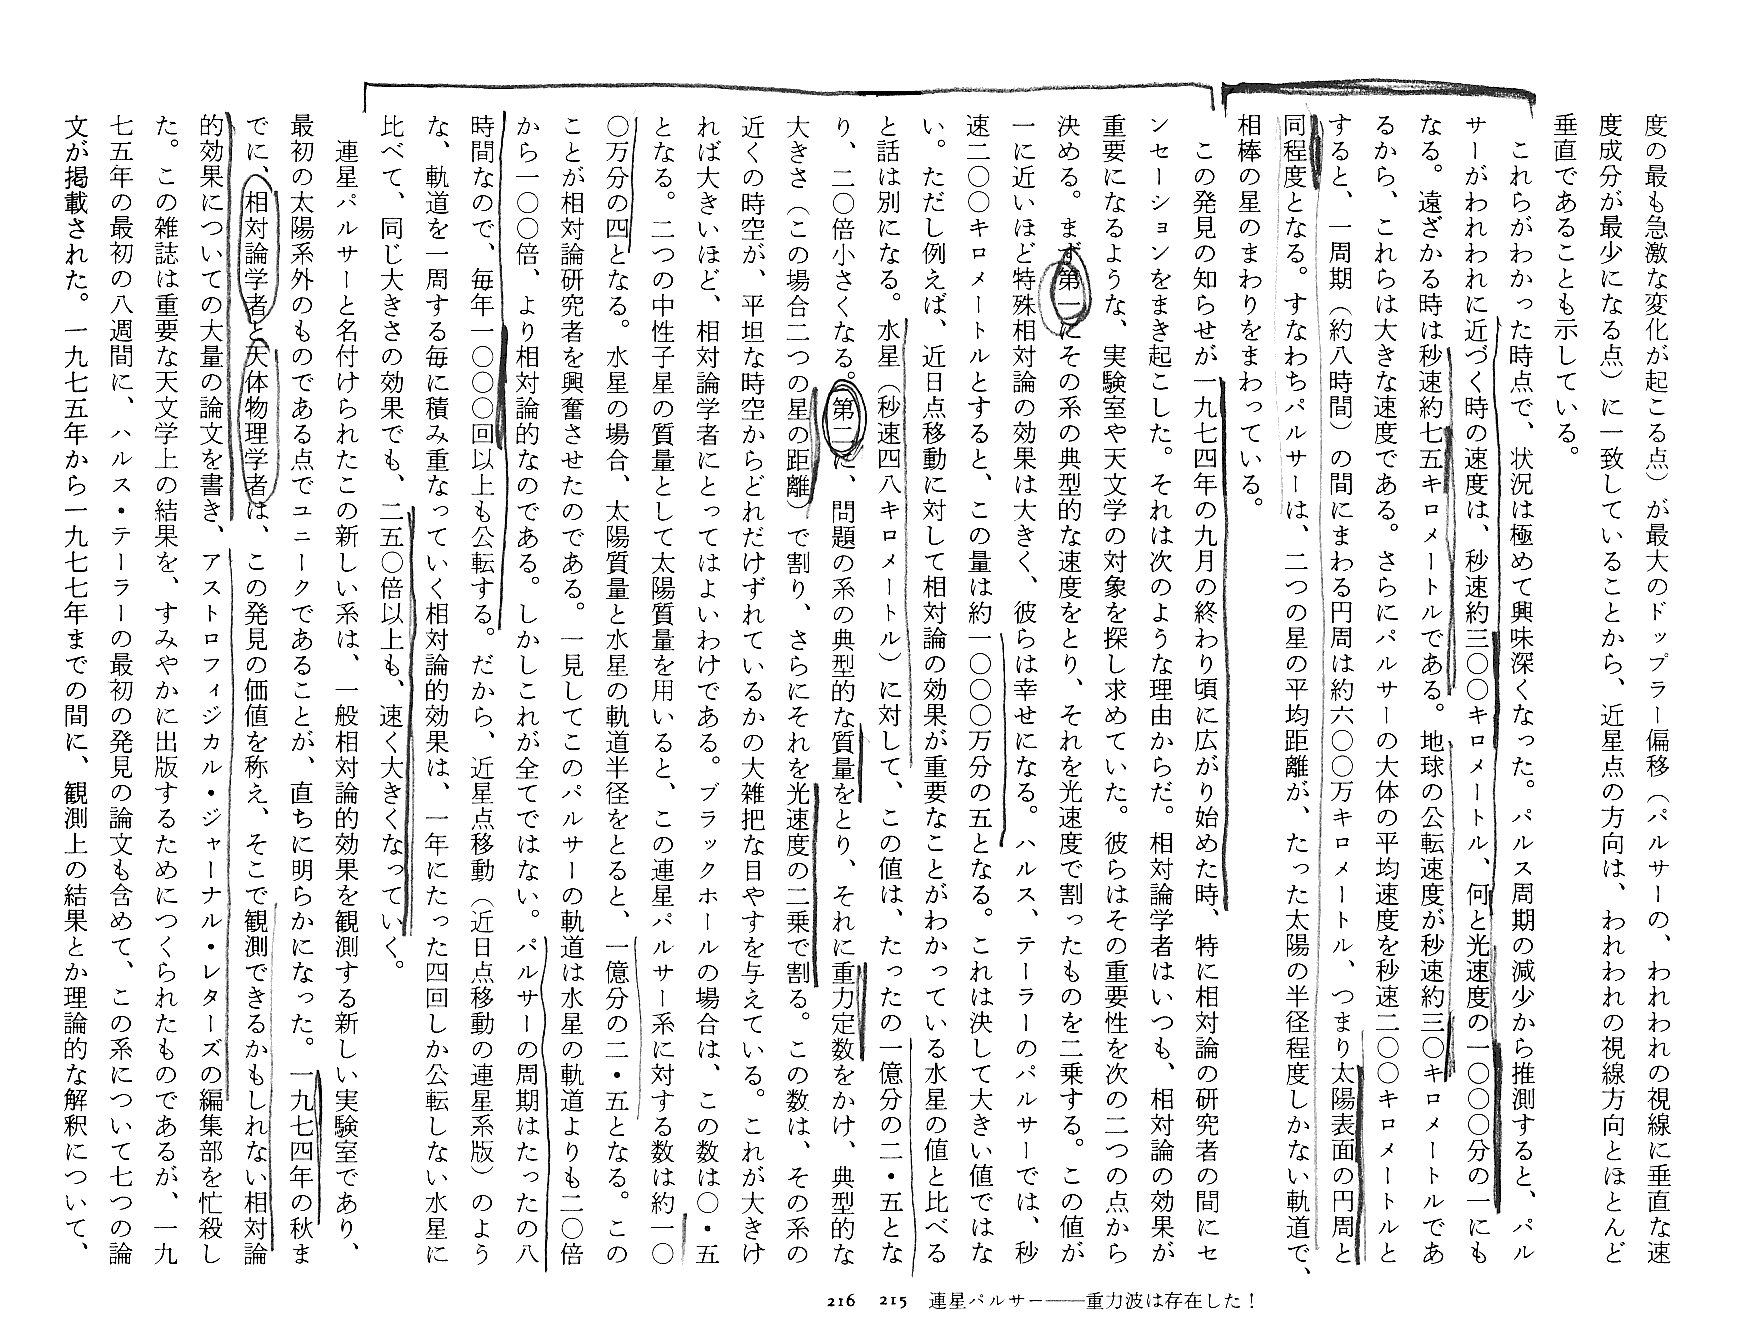 度の最も急激な変化が起こる点）が最大のドップラー偏移（パルサーの、われわれの視線に垂直な速
度成分が最少になる点）に一致していることから、近星点の方向は、われわれの視線方向とほとんど
垂直であることも示している。
これらがわかった時点で、状況は極めて興味深くなった。パルス周期の減少から推測すると、パル
サーがわれわれに近づく時の速度は、秒速約三〇〇キロメートル、何と光速度の一〇〇〇分の一にも
なる。遠ざかる時は秒速約七五キロメートルである。地球の公転速度が秒速約三〇キロメートルであ
るから、これらは大きな速度である。さらにパルサーの大体の平均速度を秒速二〇〇キロメートルと
すると、一周期（約八時間）の間にまわる円周は約六〇〇万キロメートル、つまり太陽表面の円周と
同程度となる。すなわちパルサーは、二つの星の平均距離が、たった太陽の半径程度しかない軌道で、
相棒の星のまわりをまわっている。
この発見の知らせが一九七四年の九月の終わり頃に広がり始めた時、特に相対論の研究者の間にセ
ンセーションをまき起こした。それは次のような理由からだ。相対論学者はいつも、相対論の効果が
重要になるような、実験室や天文学の対象を探し求めていた。彼らはその重要性を次の二つの点から
決める。まず第一にその系の典型的な速度をとり、それを光速度で割ったものを二乗する。この値が
一に近いほど特殊相対論の効果は大きく、彼らは幸せになる。ハルス、テーラーのパルサーでは、秒
速二〇〇キロメートルとすると、この量は約一〇〇〇万分の五となる。これは決して大きい値ではな
い。ただし例えば、近日点移動に対して相対論の効果が重要なことがわかっている水星の値と比べる
と話は別になる。水星（秒速四八キロメートル）に対して、この値は、たったの一億分の二・五とな
り、二〇倍小さくなる。第二に、問題の系の典型的な質量をとり、それに重力定数をかけ、典型的な
大きさ（この場合二つの星の距離）で割り、さらにそれを光速度の二乗で割る。この数は、その系の
近くの時空が、平坦な時空からどれだけずれているかの大雑把な目やすを与えている。これが大きけ
れば大きいほど、相対論学者にとってはよいわけである。ブラックホールの場合は、この数は〇・五
となる。二つの中性子星の質量として太陽質量を用いると、この連星パルサー系に対する数は約一〇
〇万分の四となる。水星の場合、太陽質量と水星の軌道半径をとると、一億分の二・五となる。この
ことが相対論研究者を興奮させたのである。一見してこのパルサーの軌道は水星の軌道よりも二〇倍
から一〇〇倍、より相対論的なのである。しかしこれが全てではない。パルサーの周期はたったの八
時間なので、毎年一〇〇〇回以上も公転する。だから、近星点移動（近日点移動の連星系版）のよう
な、軌道を一周する毎に積み重なっていく相対論的効果は、一年にたった四回しか公転しない水星に
比べて、同じ大きさの効果でも、二五〇倍以上も、速く大きくなっていく。
連星パルサーと名付けられたこの新しい系は、一般相対論的効果を観測する新しい実験室であり、
最初の太陽系外のものである点でユニークであることが、直ちに明らかになった。一九七四年の秋ま
でに、相対論学者と天体物理学者は、この発見の価値を称え、そこで観測できるかもしれない相対論
的効果についての大量の論文を書き、アストロフィジカル・ジャーナル・レターズの編集部を忙殺し
た。この雑誌は重要な天文学上の結果を、すみやかに出版するためにつくられたものであるが、一九
七五年の最初の八週間に、ハルス・テーラーの最初の発見の論文も含めて、この系について七つの論
文が掲載された。一九七五年から一九七七年までの間に、観測上の結果とか理論的な解釈について、
216 215 連星パルサー――重力波は存在した！